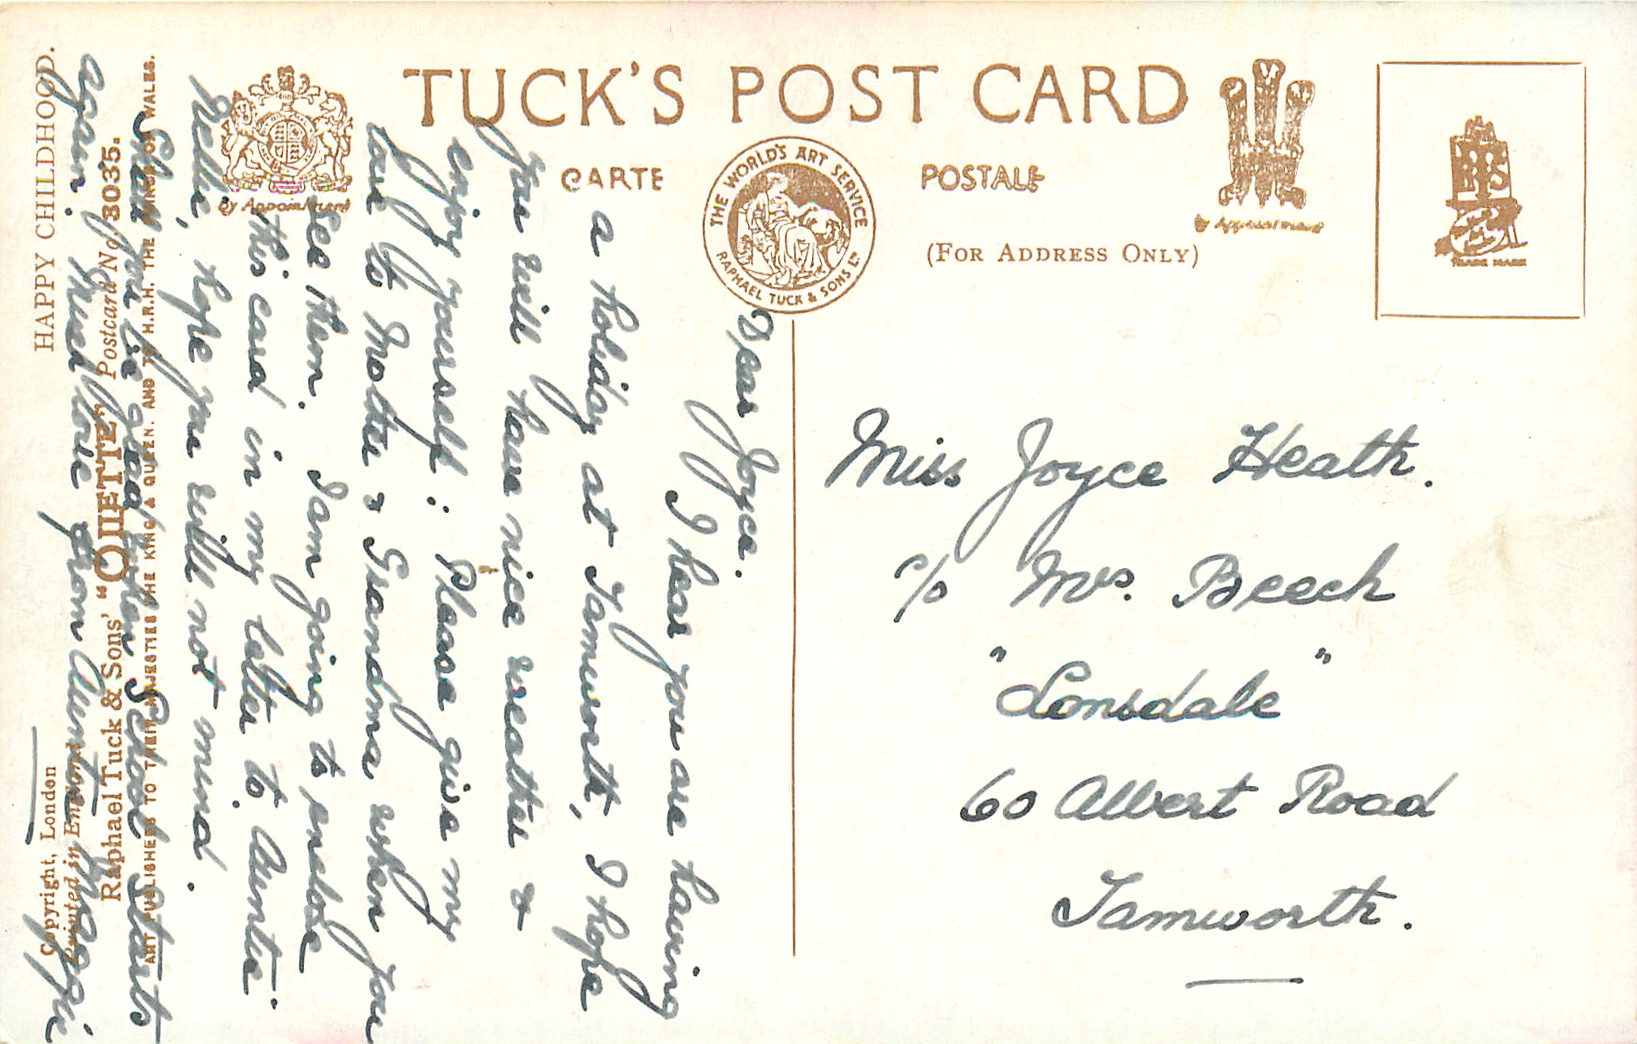 TUCK'S POST CARD
CARTE POSTALE
(FOR ADDRESS ONLY)
by Appointment
by Appointment
THE WORLD'S ART SERVICE
RAPHAEL TUCK & SONS LD
TRADE MARK
Miss Joyce Heath.
c/o Mrs. Beech
"Lonsdale"
60 Albert Road
Tamworth.
Dear Joyce.
I hear you are having
a holiday at Tamworth, I hope
you will have nice weather &
enjoy yourself. Please give my
love to Mother & Grandma when you
see them. I am going to enclose
this card in my letter to "Auntie"
Nellie, hope you will not mind.
Shall you be glad when School starts
again. Much love from Auntie Maggie
ART PUBLISHERS TO THEIR MAJESTIES THE KING & QUEEN, AND TO H.R.H. THE PRINCE OF WALES.
Raphael Tuck & Sons' "OILETTE" Postcard No. 3035.
Printed in England
Copyright, London
HAPPY CHILDHOOD.